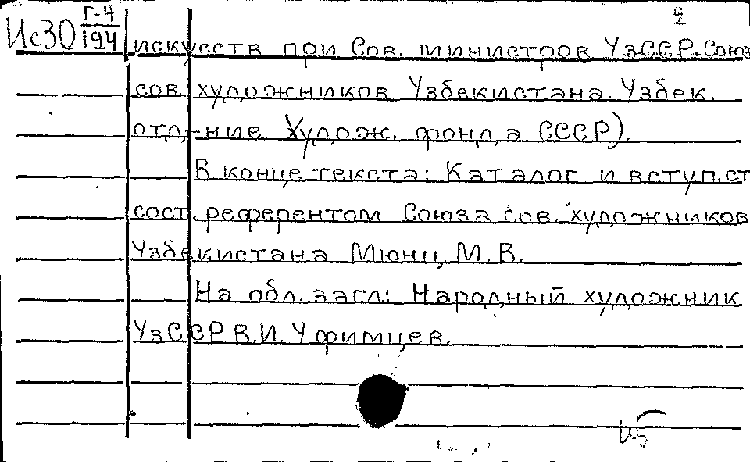 Ис30 Г-4/194 2
искусств при Сов. министров УзССР. Союз
сов. художников Узбекистана. Узбек.
отд-ние Худож. фонда СССР).
В конце текста: Каталог и вступ. ст.
сост. референтом Союза сов. художников
Узбекистана Мюнц, М. В.
На обл. загл.: Народный художник
УзССР В. И. Уфимцев.